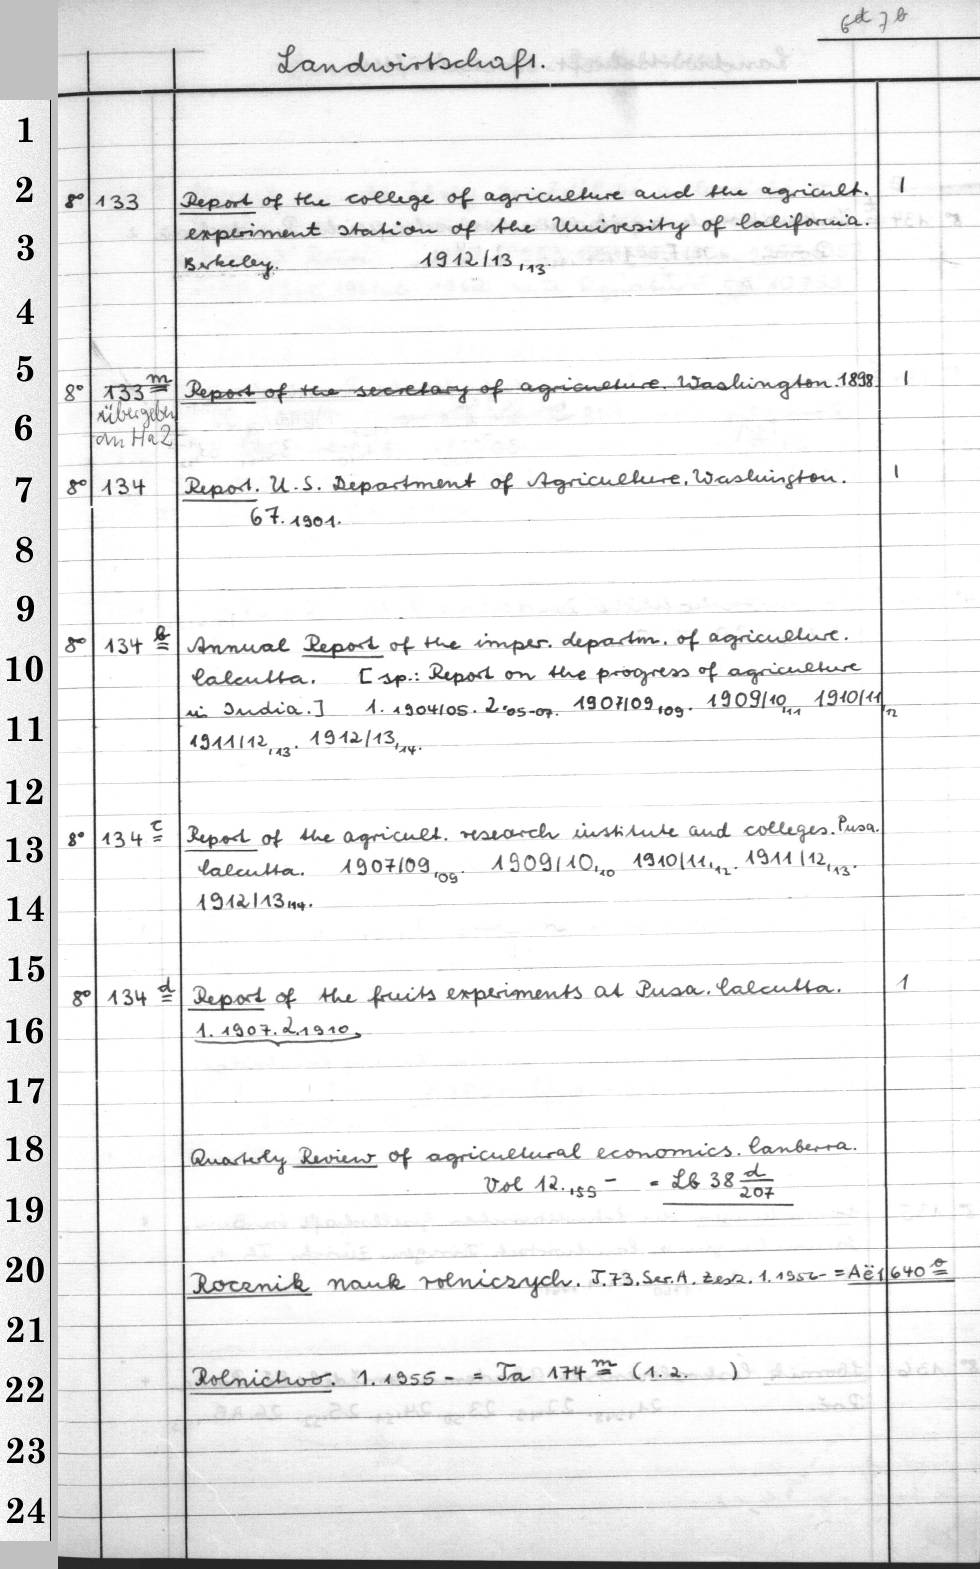 6d 7b
Landwirtschaft.
1
2 8° 133 Report of the college of agriculture and the agricult. 1
experiment station of the University of California.
3 Berkeley. 1912/13,13.
4
5 8° 133 m Report of the secretary of agriculture. Washington. 1898 1
übergeben
6 an Ha2
7 8° 134 Report. U.S. Department of Agriculture. Washington. 1
67. 1901.
8
9
8° 134 b Annual Report of the imper. departm. of agriculture.
10 Calcutta. [sp.: Report on the progress of agriculture
11 in India.] 1. 1904/05. 2. 05-07. 1907/09,09. 1909/10,11 1910/11,12
1911/12,13. 1912/13,14.
12
13 8° 134 c Report of the agricult. research institute and colleges. Pusa.
Calcutta. 1907/09,09. 1909/10,10 1910/11,12. 1911/12,13.
14 1912/13,14.
15
8° 134 d Report of the fruits experiments at Pusa. Calcutta. 1
16 1. 1907. 2. 1910,
17
18 Quarterly Review of agricultural economics. Canberra.
Vol 12.,55 - = Lb 38 d/207
19
20 Rocznik nauk rolniczych. T.73. Ser. A. zesz. 1. 1956- = Aë 1640 e
21
22 Rolnictwo. 1. 1955 - = Ta 174 m (1. 2. )
23
24